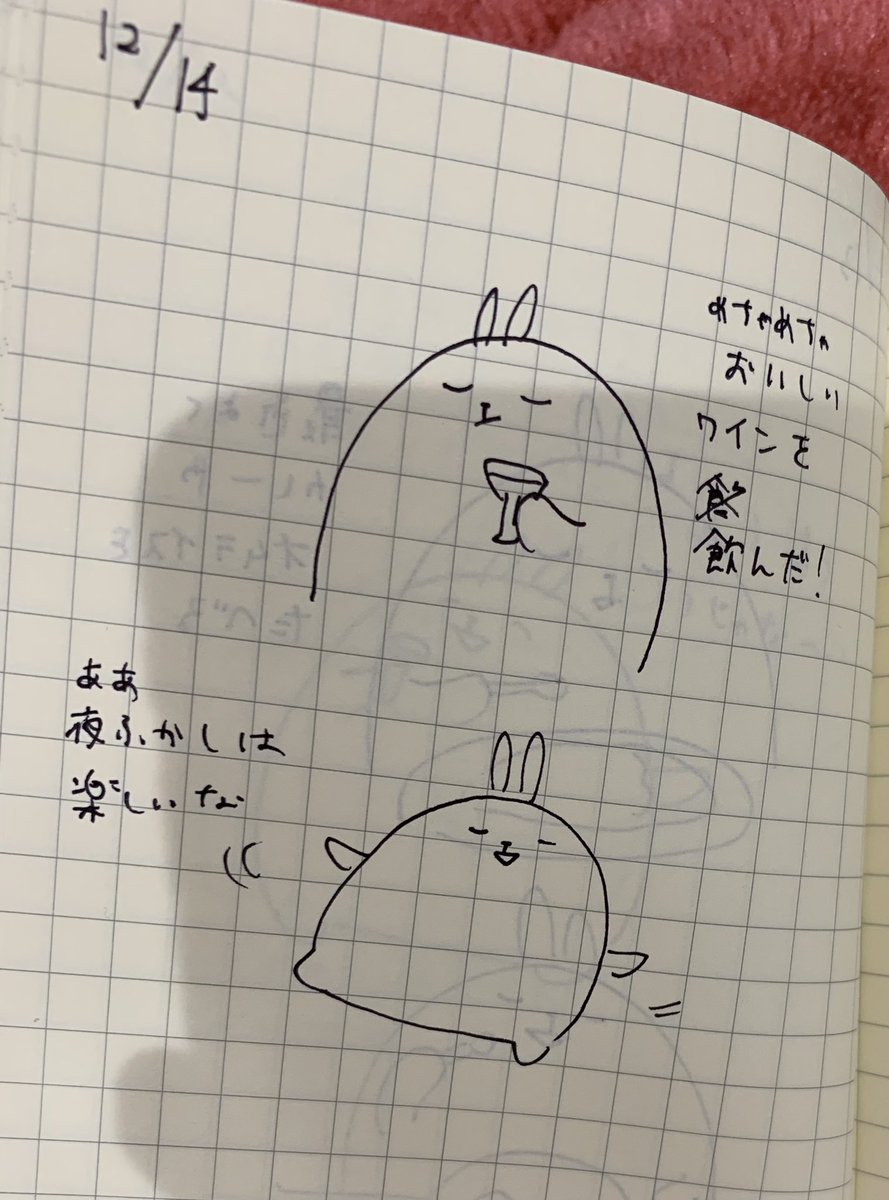 12/14
めちゃめちゃ
おいしい
ワインを
飲んだ!
ああ
夜ふかしは
楽しいな